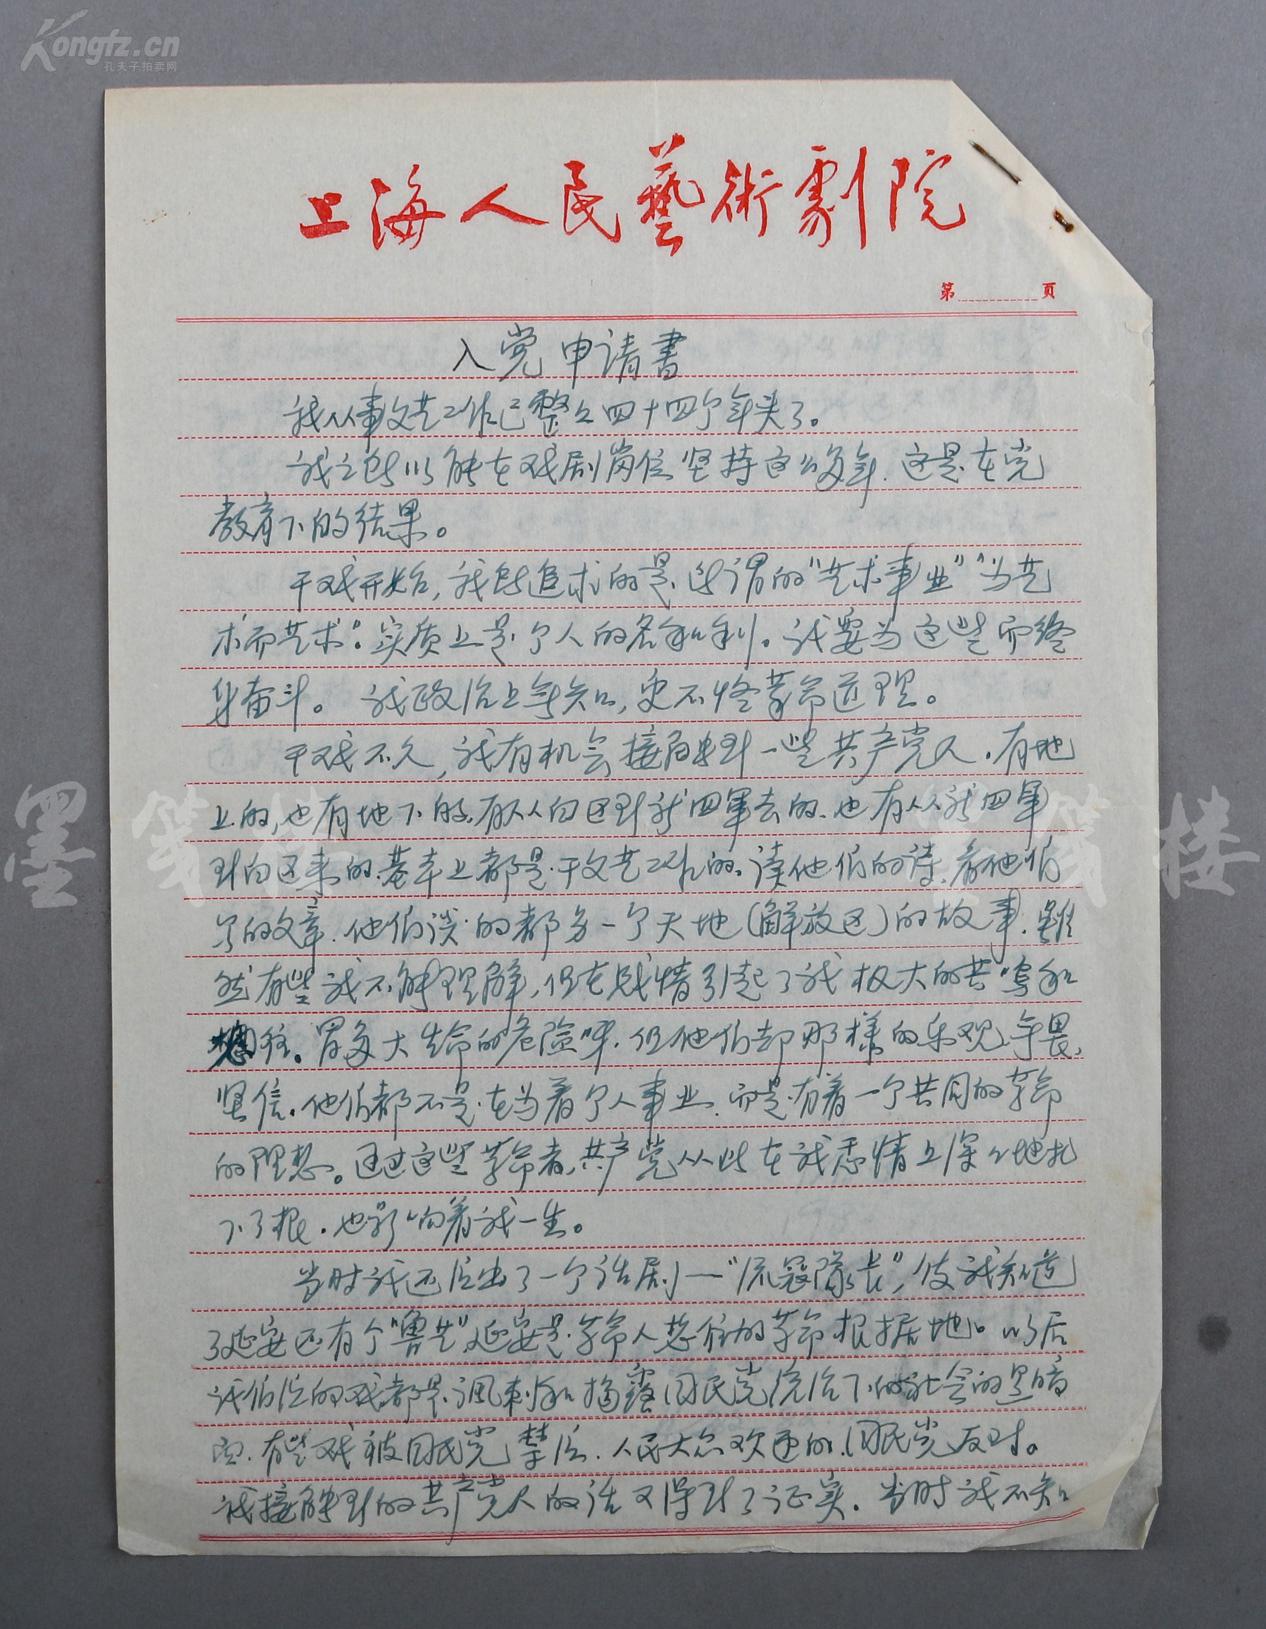 Kongfz.cn
孔夫子拍卖网
上海人民藝術劇院
第 頁
入党申请書
我从事文艺工作已整整四十四个年头了。
我之所以能在戏剧岗位坚持这么多年，这是在党
教育下的结果。
干戏开始，我所追求的是，所谓的“艺术事业”“为艺
术而艺术”。实质上是个人的名和利。我要为这些而终
身奋斗。我政治上无知，更不懂革命道理。
干戏不久，我有机会接触到一些共产党人，有地
上的，也有地下的，有从白区到新四军去的，也有从新四军
到白区来的，基本上都是干文艺工作的。读他们的诗，看他们
写的文章，他们谈的都另一个天地（解放区）的故事，虽
然有些我不能理解，但在感情引起了我极大的共鸣和
想往。冒多大生命的危险呀，但他们却那样的乐观，无畏，
坚信。他们都不是在为着个人事业，而是有着一个共同的革命
的理想。通过这些革命者，共产党从此在我感情上深深地扎
下了根，也影响着我一生。
当时我还演出了一个话剧—“流寇队长”，使我知道
了延安还有个“鲁艺”延安是革命人想往的革命根据地。以后
我们演的戏都是讽刺和揭露国民党统治下的社会的黑暗
面，有些戏被国民党禁演，人民大众欢迎的，国民党反对。
我接触到的共产党人的话又得到了证实。当时我不知
墨笺楼
笺楼